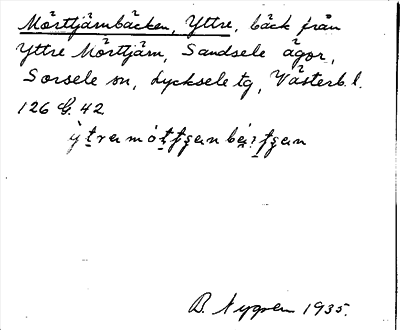 Mörttjärnbäcken, Yttre, bäck från
Yttre Mörttjärn, Sandsele ägor,
Sorsele sn, Lycksele tg, Västerb. l.
126 C. 42
B. Nygren 1935.